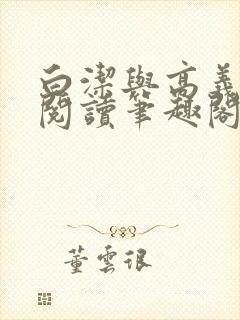 白潔與高義
閱讀筆趣閣
董雲很